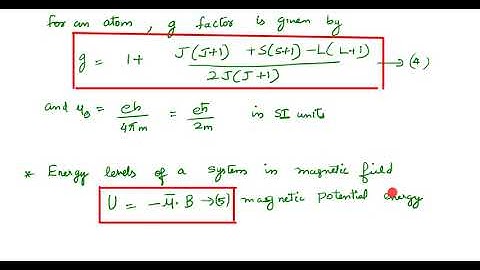 for an atom, g factor is given by
g = 1 + J(J+1) + S(S+1) - L(L+1) / 2J(J+1) → (4)
and μ_B = eh/4πm = eħ/2m in SI units
* Energy levels of a system in magnetic field
U = -μ̄. B → (5) magnetic potential energy